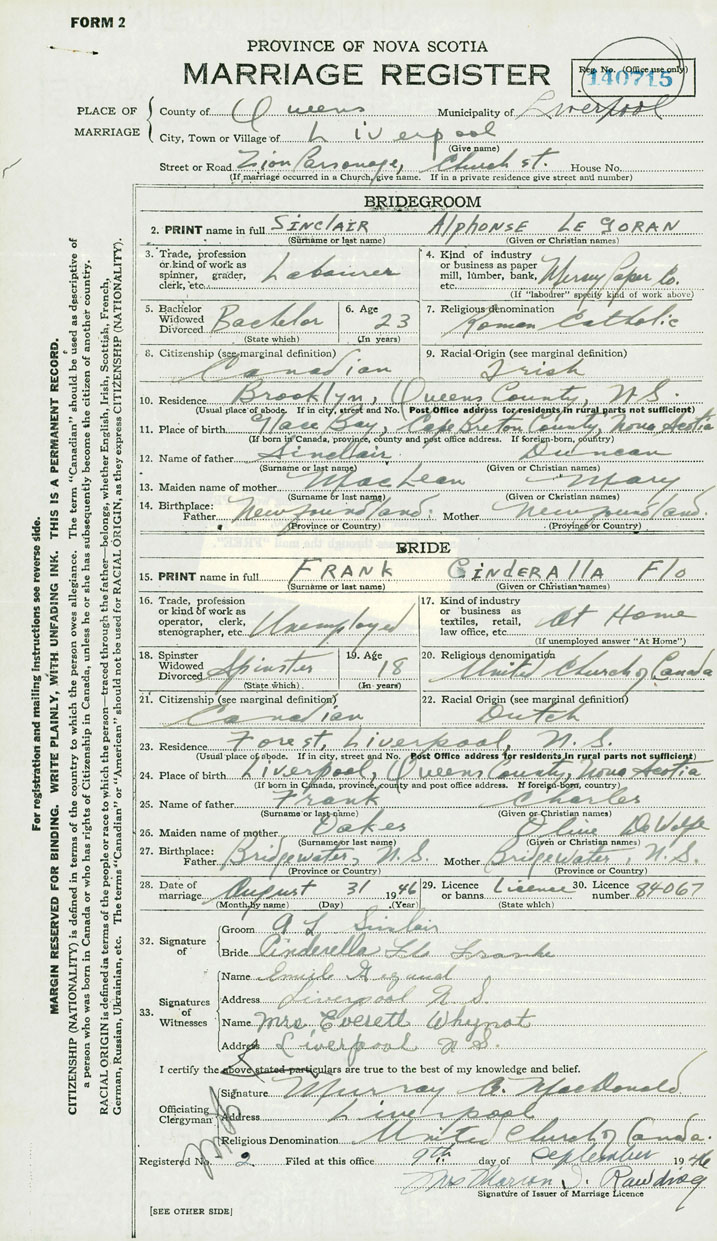 FORM 2
PROVINCE OF NOVA SCOTIA
MARRIAGE REGISTER
Reg. No. (Office use only)
140715
PLACE OF MARRIAGE
County of Queens Municipality of Liverpool
City, Town or Village of Liverpool
(Give name)
Street or Road Zion Parsonage, Church st. House No.
(If marriage occurred in a Church, give name. If in a private residence give street and number)
BRIDEGROOM
2. PRINT name in full SINCLAIR ALPHONSE LE GORAN
(Surname or last name) (Given or Christian names)
3. Trade, profession or kind of work as spinner, grader, clerk, etc. Labourer
4. Kind of industry or business as paper mill, lumber, bank, etc. Mersey Paper Co.
(If "labourer" specify kind of work above)
5. Bachelor Widowed Divorced Bachelor
(State which)
6. Age 23
(In years)
7. Religious denomination
Roman Catholic
8. Citizenship (see marginal definition)
Canadian
9. Racial Origin (see marginal definition)
Irish
10. Residence Brooklyn, Queens County, N.S.
(Usual place of abode. If in city, street and No. Post Office address for residents in rural parts not sufficient)
11. Place of birth Glace Bay, Cape Breton County, Nova Scotia
(If born in Canada, province, county and post office address. If foreign-born, country)
12. Name of father Sinclair Duncan
(Surname or last name) (Given or Christian names)
13. Maiden name of mother MacLean Mary
(Surname or last name) (Given or Christian names)
14. Birthplace: Father Newfoundland. Mother Newfoundland.
(Province or Country) (Province or Country)
BRIDE
15. PRINT name in full FRANK CINDERALLA Flo
(Surname or last name) (Given or Christian names)
16. Trade, profession or kind of work as operator, clerk, stenographer, etc. Unemployed
17. Kind of industry or business as textiles, retail, law office, etc. At Home
(If unemployed answer "At Home")
18. Spinster Widowed Divorced Spinster
(State which)
19. Age 18
(In years)
20. Religious denomination
United Church of Canada
21. Citizenship (see marginal definition)
Canadian
22. Racial Origin (see marginal definition)
Dutch
23. Residence Forest, Liverpool, N.S.
(Usual place of abode. If in city, street and No. Post Office address for residents in rural parts not sufficient)
24. Place of birth Liverpool, Queens County, Nova Scotia
(If born in Canada, province, county and post office address. If foreign-born, country)
25. Name of father Frank Charles
(Surname or last name) (Given or Christian names)
26. Maiden name of mother Oakes Olive DeWolfe
(Surname or last name) (Given or Christian names)
27. Birthplace: Father Bridgewater, N.S. Mother Bridgewater, N.S.
(Province or Country) (Province or Country)
28. Date of marriage August 31 1946
(Month by name) (Day) (Year)
29. Licence or banns Licence
(State which)
30. Licence number 84067
32. Signature of
Groom A L Sinclair
Bride Cinderella Flo Franke
33. Signatures of Witnesses
Name Emile
Address Liverpool N.S.
Name Mrs Everett Whynot
Address Liverpool N.S.
I certify the above stated particulars are true to the best of my knowledge and belief.
Officiating Clergyman
Signature Murray A. MacDonald
Address Liverpool
Religious Denomination United Church of Canada.
Registered No. 2 Filed at this office 9th day of September 1946
Mrs Marion J.
Signature of Issuer of Marriage Licence
[SEE OTHER SIDE]
For registration and mailing instructions see reverse side.
MARGIN RESERVED FOR BINDING. WRITE PLAINLY, WITH UNFADING INK. THIS IS A PERMANENT RECORD.
CITIZENSHIP (NATIONALITY) is defined in terms of the country to which the person owes allegiance. The term "Canadian" should be used as descriptive of
a person who was born in Canada or who has rights of Citizenship in Canada, unless he or she has subsequently become the citizen of another country.
RACIAL ORIGIN is defined in terms of the people or race to which the person—traced through the father—belongs, whether English, Irish, Scottish, French,
German, Russian, Ukrainian, etc. The terms "Canadian" or "American" should not be used for RACIAL ORIGIN, as they express CITIZENSHIP (NATIONALITY).